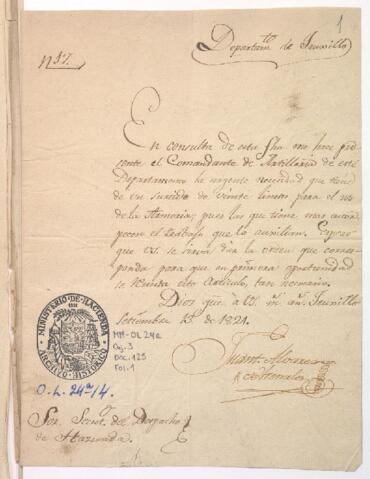 1
Departam.to de Truxillo
N 57.
En consulta de esta fha me hace pre
sente el Comandante de Artilleria de este
Departamento la urgente necesidad que tiene
de un surtido de veinte limas para el uso
de la Armeria, pues las que tiene mas
que lo auxilian. Espero
que VS. se sirva dar la orden que corres
ponda para que en primera oportunidad
se remita este Articulo, tan necesario.
Dios gũe. à VS. m. an.s Truxillo
Settiembre 15 de 1821.
MINISTERIO DE HACIENDA
ARCHIVO HISTORICO
MH-OL 24a
Caj. 3
Doc. 125
Fol. 1
O.L. 24ª/4.
Sor. Secret.o del Despacho
de Hazienda.